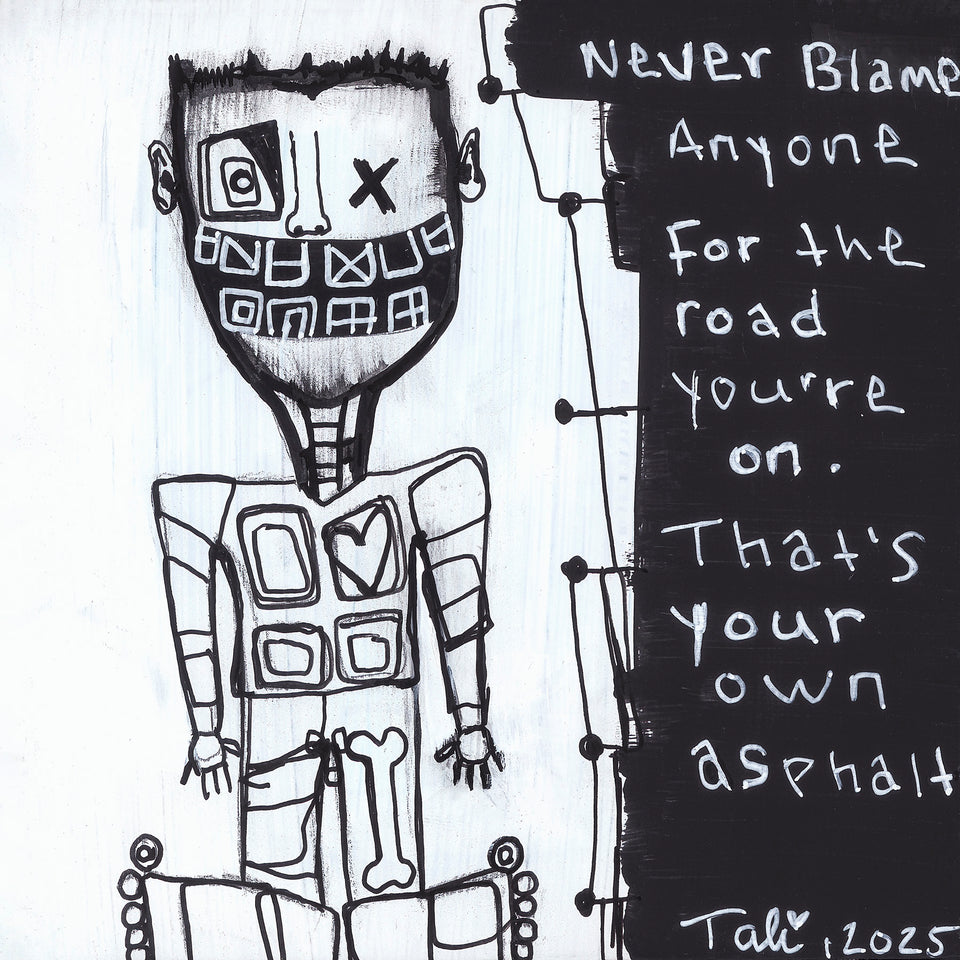 Never Blame
Anyone
For the
road
you're
on.
That's
your
own
asphalt
Tali, 2025